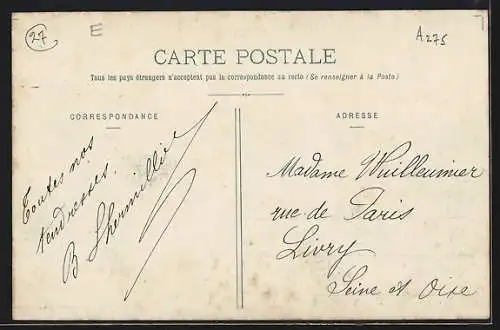 27
E
A275
CARTE POSTALE
Tous les pays étrangers n'acceptent pas la correspondance au recto (Se renseigner à la Poste)
CORRESPONDANCE
Toutes nos
tendresses.
B
ADRESSE
Madame Wuilleumier
rue de Paris
Livry
Seine et Oise